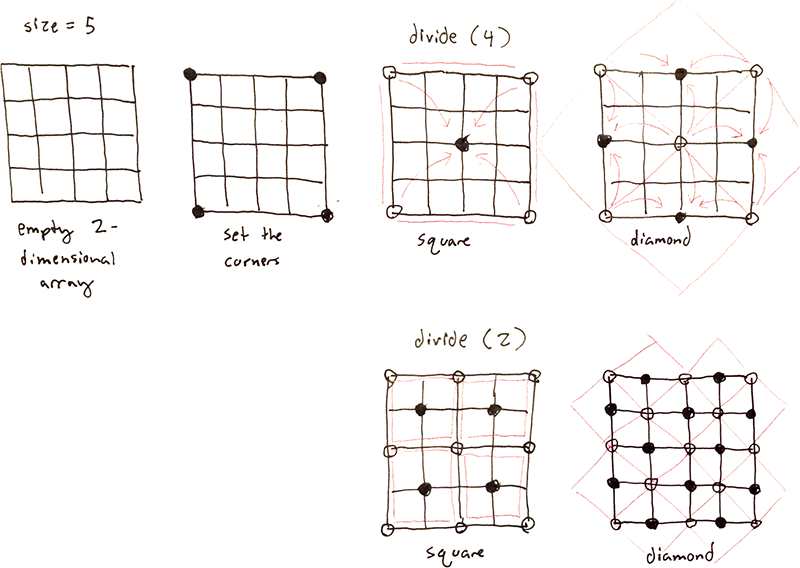 size = 5
divide (4)
empty 2-
dimensional
array
set the
corners
square
diamond
divide (2)
square
diamond